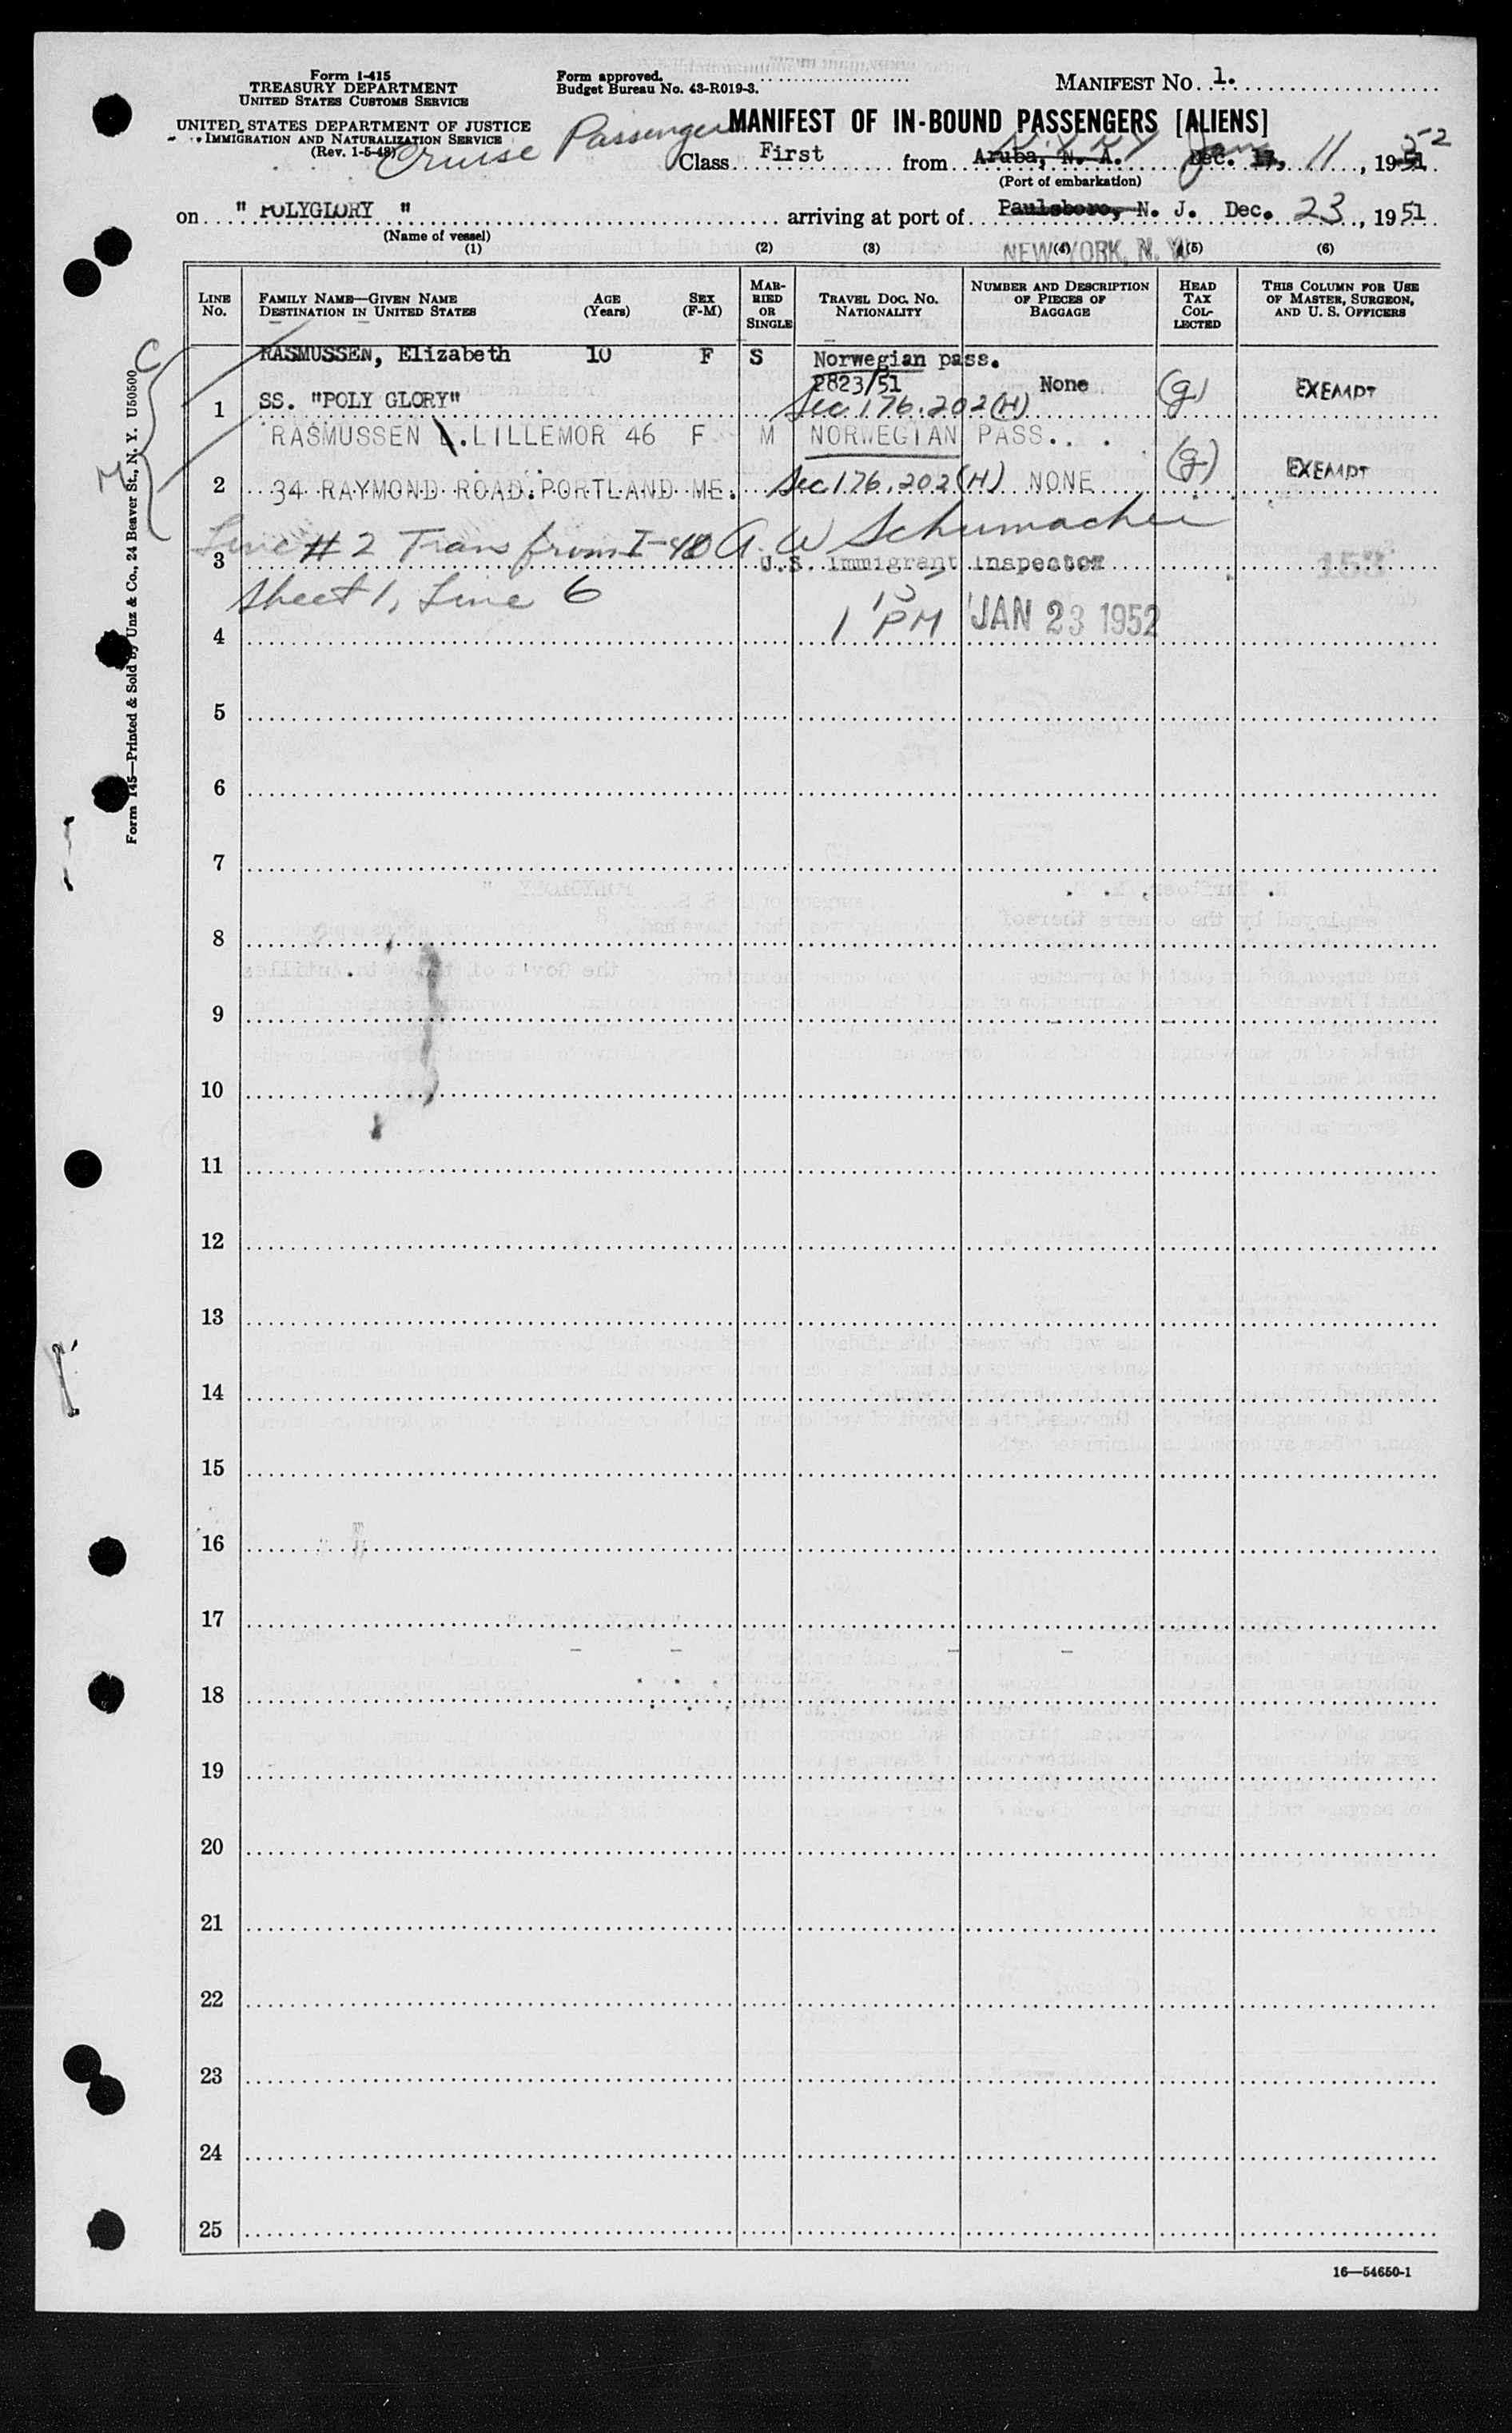 Form I-415
TREASURY DEPARTMENT
UNITED STATES CUSTOMS SERVICE
UNITED STATES DEPARTMENT OF JUSTICE
IMMIGRATION AND NATURALIZATION SERVICE
(Rev. 1-5-48)
Form approved.
Budget Bureau No. 43-R019-3.
MANIFEST NO. 1.
Cruise Passenger
MANIFEST OF IN-BOUND PASSENGERS [ALIENS]
Class First from Aruba, N. A. Dec. Jan 11, 1951 52
(Port of embarkation)
on " POLYGLORY " arriving at port of Paulsboro, N. J. Dec. 23, 1951
(Name of vessel)
NEW YORK, N. Y.
(1) (2) (3) (4) (5) (6)
LINE NO.
FAMILY NAME—GIVEN NAME
DESTINATION IN UNITED STATES
AGE (Years)
SEX (F-M)
MARRIED OR SINGLE
TRAVEL DOC. NO. NATIONALITY
NUMBER AND DESCRIPTION OF PIECES OF BAGGAGE
HEAD TAX COLLECTED
THIS COLUMN FOR USE OF MASTER, SURGEON, AND U. S. OFFICERS
C
RASMUSSEN, Elizabeth 10 F S Norwegian pass.
2823/51 None (g) EXEMPT
1 SS. "POLY GLORY" Sec 176.202(H)
RASMUSSEN L.LILLEMOR 46 F M NORWEGIAN PASS.
M
2 34 RAYMOND ROAD.PORTLAND ME. Sec 176.202(H) NONE (g) EXEMPT
Line #2 Trans from I-418 A. W Schumacher
3 U.S. Immigrant Inspector 153
Sheet 1, Line 6
4 1 15 PM JAN 23 1952
5
6
7
8
9
10
11
12
13
14
15
16
17
18
19
20
21
22
23
24
25
Form 145—Printed & Sold by Unz & Co., 24 Beaver St., N. Y. U50500
16—54650-1